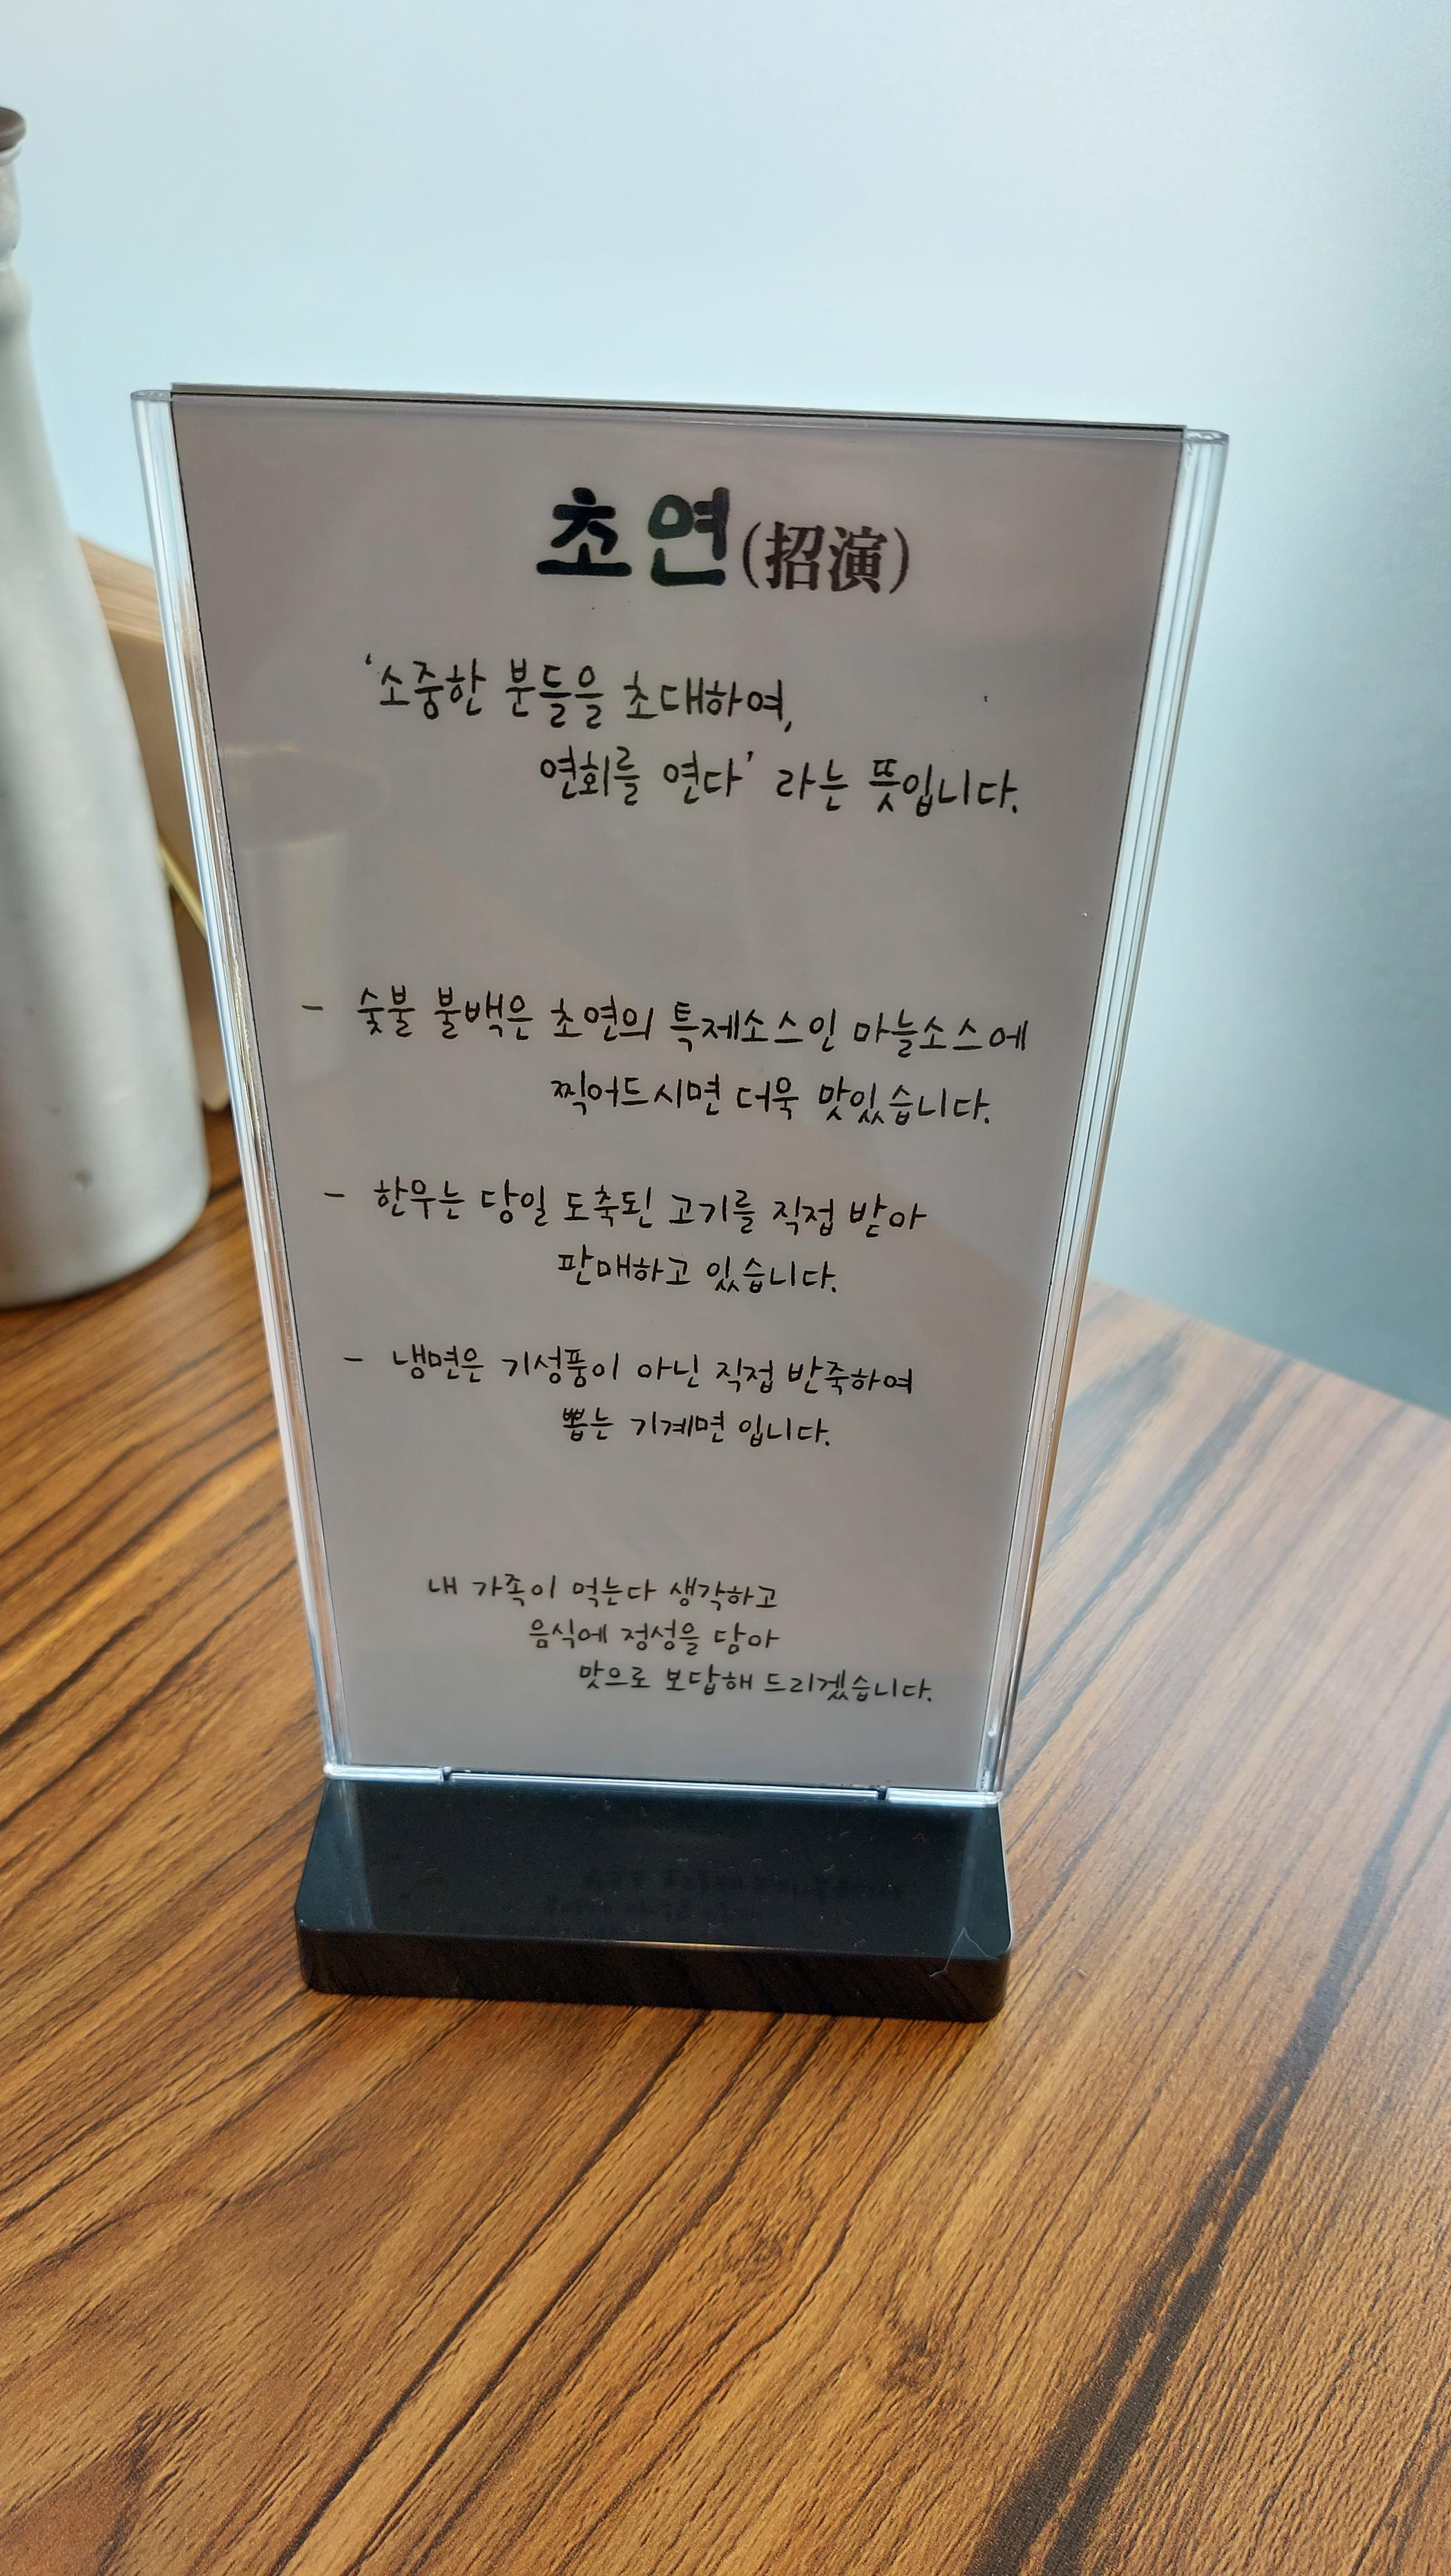 초연(招演)
'소중한 분들을 초대하여,
연회를 연다' 라는 뜻입니다.
- 숯불 불백은 초연의 특제소스인 마늘소스에
찍어드시면 더욱 맛있습니다.
- 한우는 당일 도축된 고기를 직접 받아
판매하고 있습니다.
- 냉면은 기성품이 아닌 직접 반죽하여
뽑는 기계면 입니다.
내 가족이 먹는다 생각하고
음식에 정성을 담아
맛으로 보답해 드리겠습니다.